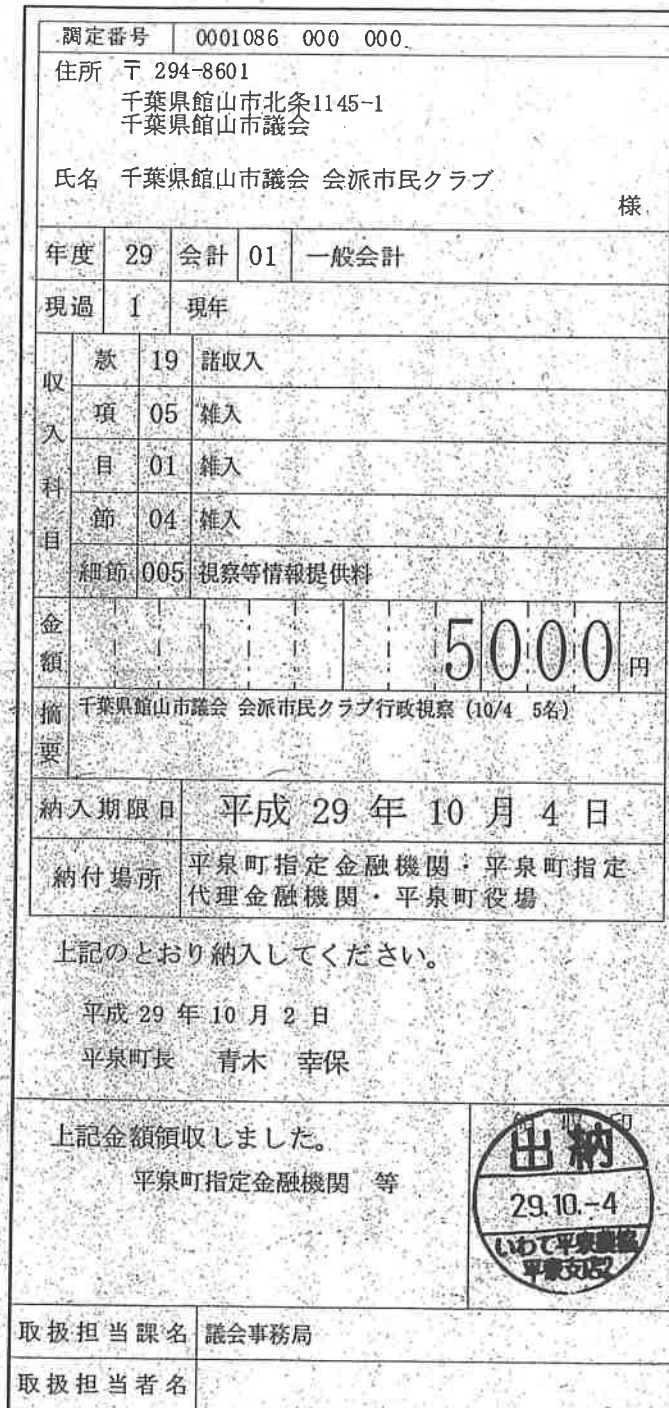 調定番号 0001086 000 000
住所 〒 294-8601
千葉県館山市北条1145-1
千葉県館山市議会
氏名 千葉県館山市議会 会派市民クラブ
様
年度 29 会計 01 一般会計
現過 1 現年
収入科目
款 19 諸収入
項 05 雑入
目 01 雑入
節 04 雑入
細節 005 視察等情報提供料
金額 5000 円
摘要 千葉県館山市議会 会派市民クラブ行政視察 (10/4 5名)
納入期限日 平成 29 年 10 月 4 日
納付場所 平泉町指定金融機関・平泉町指定
代理金融機関・平泉町役場
上記のとおり納入してください。
平成 29 年 10 月 2 日
平泉町長 青木 幸保
上記金額領収しました。
平泉町指定金融機関 等
領収印
出納
29.10.-4
いわて平泉農協
平泉支店2
取扱担当課名 議会事務局
取扱担当者名